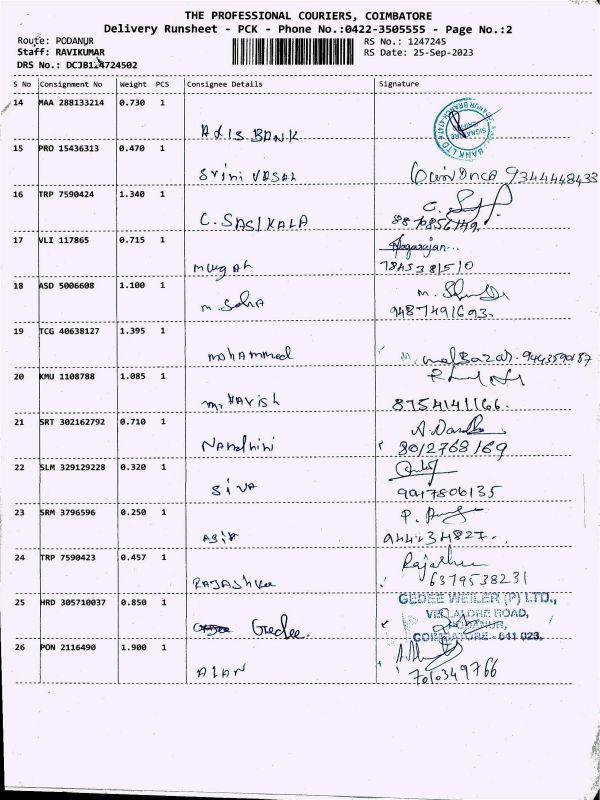 THE PROFESSIONAL COURIERS, COIMBATORE
Delivery Runsheet - PCK - Phone No.:0422-3505555 - Page No.:2
Route: PODANUR RS No.: 1247245
Staff: RAVIKUMAR RS Date: 25-Sep-2023
DRS No.: DCJB124724502
S No Consignment No Weight PCS Consignee Details Signature
14 MAA 288133214 0.730 1
AXIS BANK
15 PRO 15436313 0.470 1
Srini VASAN 9344448433
16 TRP 7590424 1.340 1
C. SASIKALA 8870856149
17 VLI 117865 0.715 1
Nagarajan
Mugah 7845381510
18 ASD 5006608 1.100 1
M. Soha 9487491693
19 TCG 40638127 1.395 1
Mohammed 9443590187
20 KMU 1108788 1.085 1
M. Havish 8754141166
21 SRT 302162792 0.710 1
Nandhini 8012768169
22 SLM 329129228 0.320 1
SIVA 9047806135
23 SRM 3796596 0.250 1
ASIA 9444234827
24 TRP 7590423 0.457 1
Rajashree
RAJAShree 6379538231
25 HRD 305710037 0.850 1
GEDEE WEILER (P) LTD.,
VELLALORE ROAD,
Gedee. PODANUR,
COIMBATORE - 641 023.
26 PON 2116490 1.900 1
ALAN 7010349766